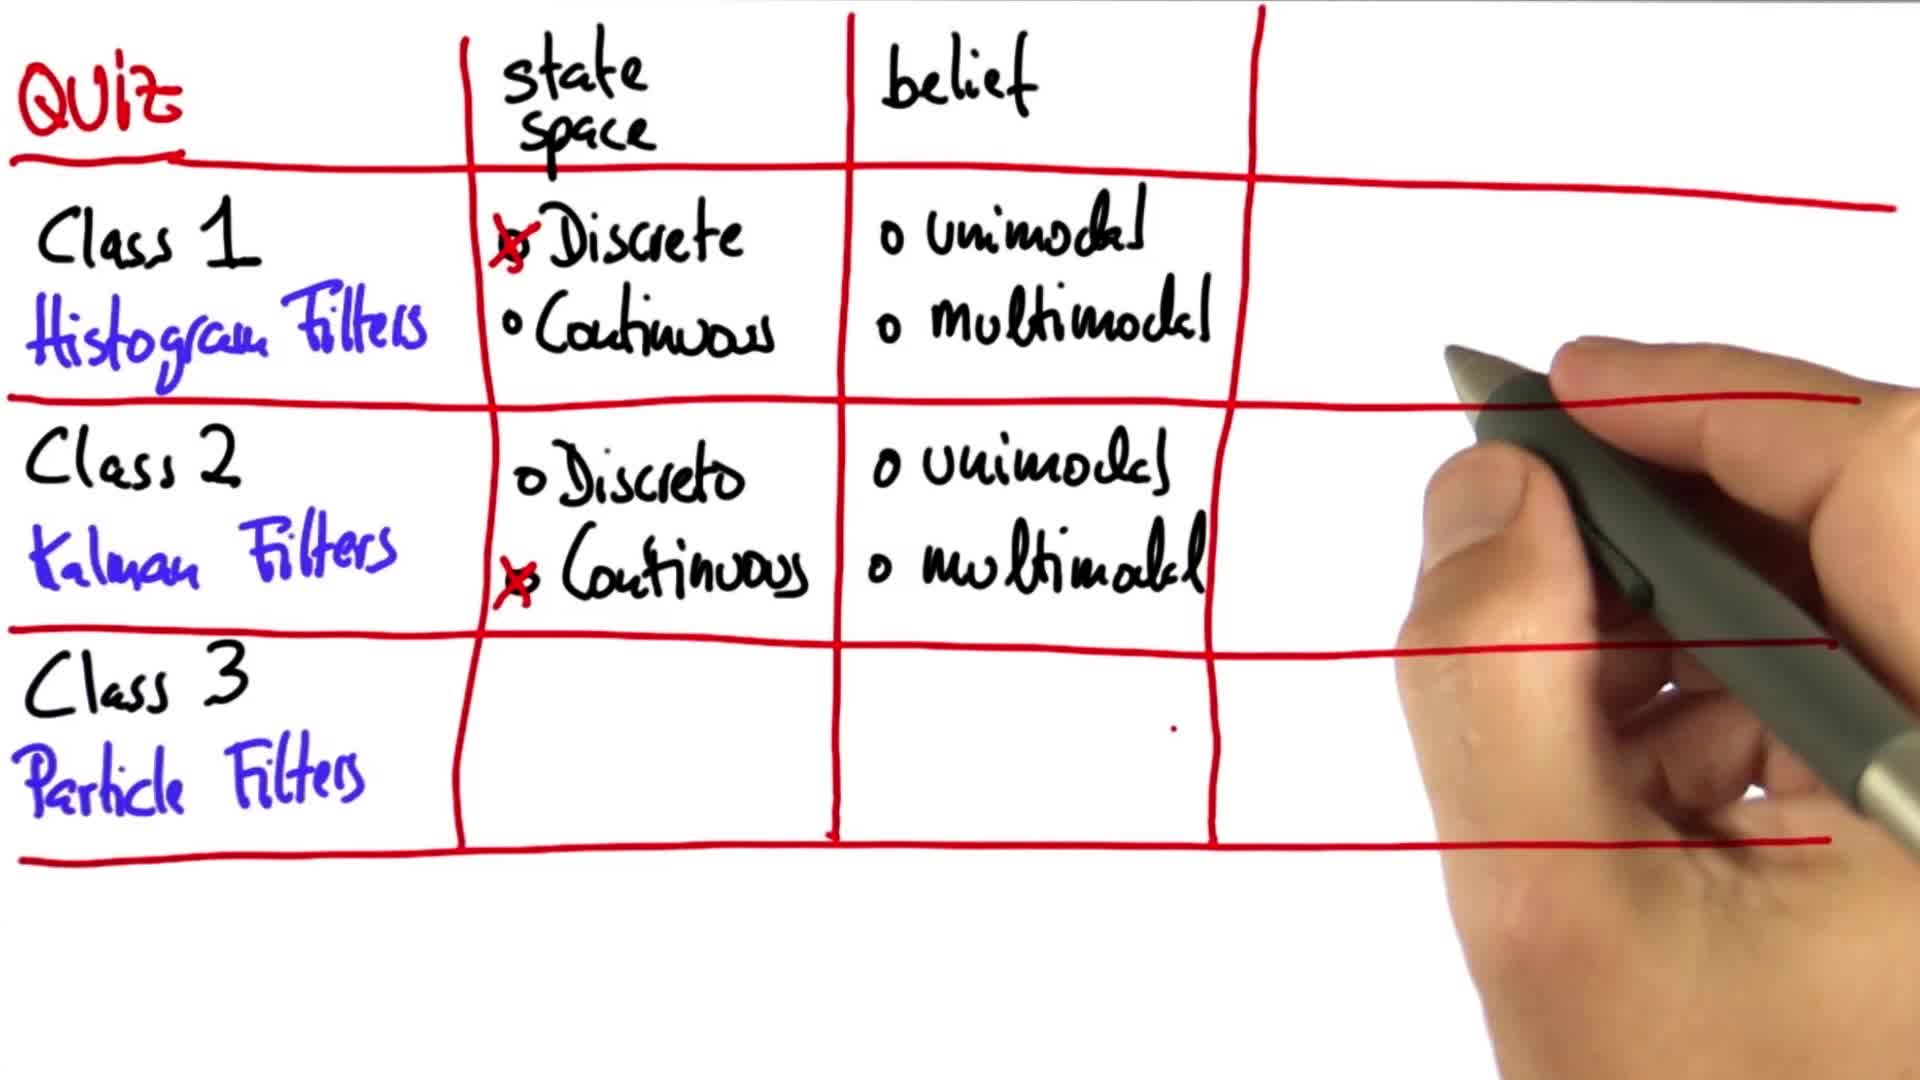 QUiz
state
space
belief
Class 1
Histogram Filters
o Discrete
o Continuous
o unimodal
o multimodal
Class 2
Kalman Filters
o Discrete
o Continuous
o unimodal
o multimodal
Class 3
Particle Filters